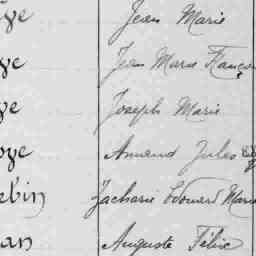 ye Jean Marie
ye Jean Marie Françoi
ye Joseph Marie
oye Armand Jules
ebin Zacharie Edouard Marie
an Auguste Félix